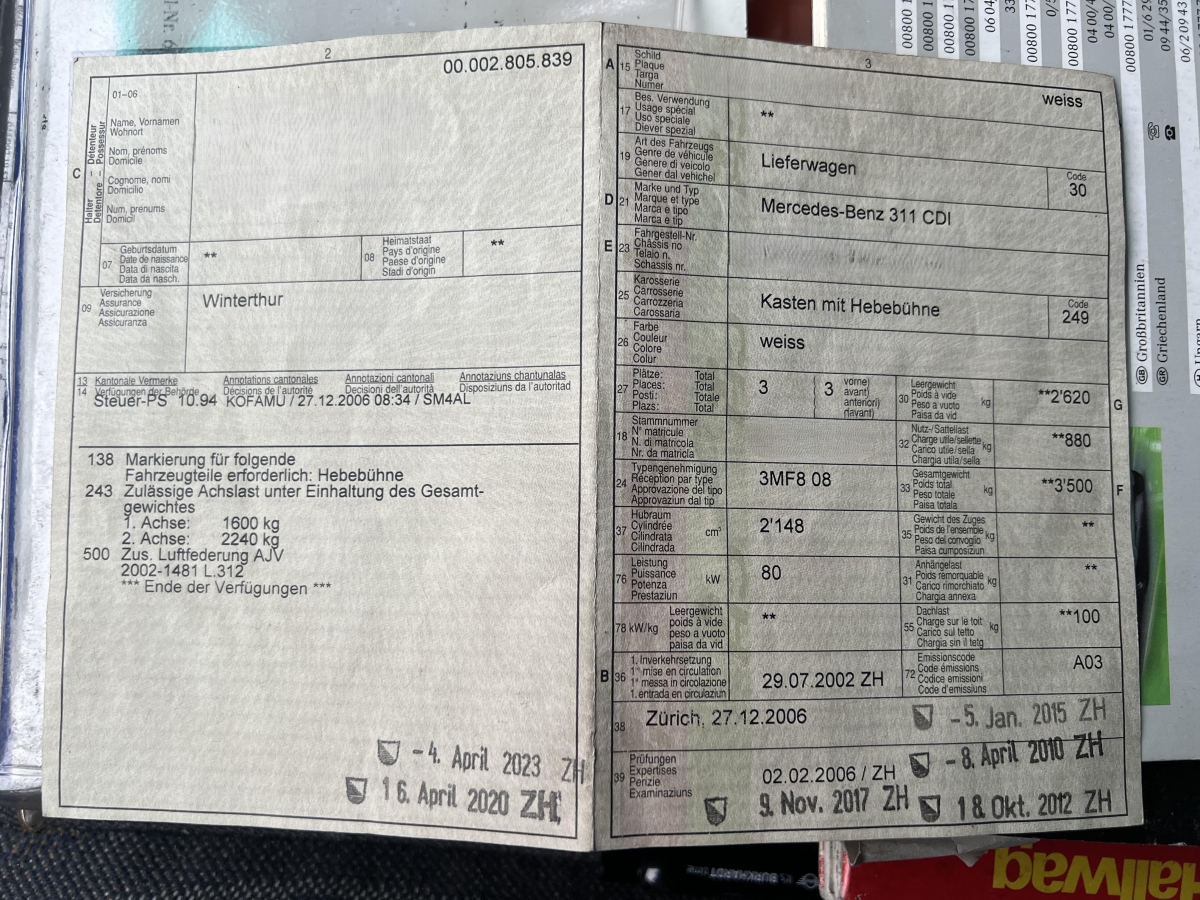 2
00.002.805.839
01–06
C
Halter – Détenteur
Detentore – Possessur
Name, Vornamen
Wohnort
Nom, prénoms
Domicile
Cognome, nomi
Domicilio
Num, prenums
Domicil
07
Geburtsdatum
Date de naissance
Data di nascita
Data da nasch.
**
08
Heimatstaat
Pays d'origine
Paese d'origine
Stadi d'origin
**
09
Versicherung
Assurance
Assicurazione
Assicuranza
Winterthur
13 Kantonale Vermerke Annotations cantonales Annotazioni cantonali Annotaziuns chantunalas
14 Verfügungen der Behörde Décisions de l'autorité Decisioni dell'autorità Disposiziuns da l'autoritad
Steuer-PS 10.94 KOFAMU / 27.12.2006 08:34 / SM4AL
138 Markierung für folgende
Fahrzeugteile erforderlich: Hebebühne
243 Zulässige Achslast unter Einhaltung des Gesamt-
gewichtes
1. Achse: 1600 kg
2. Achse: 2240 kg
500 Zus. Luftfederung AJV
2002-1481 L.312
*** Ende der Verfügungen ***
- 4. April 2023 ZH
1 6. April 2020 ZH
3
A 15
Schild
Plaque
Targa
Numer
weiss
17
Bes. Verwendung
Usage spécial
Uso speciale
Diever spezial
**
19
Art des Fahrzeugs
Genre de véhicule
Genere di veicolo
Gener dal vehichel
Lieferwagen
Code
30
D 21
Marke und Typ
Marque et type
Marca e tipo
Marca e tip
Mercedes-Benz 311 CDI
E 23
Fahrgestell-Nr.
Châssis no
Telaio n.
Schassis nr.
25
Karosserie
Carrosserie
Carrozzeria
Carossaria
Kasten mit Hebebühne
Code
249
26
Farbe
Couleur
Colore
Colur
weiss
27
Plätze: Total
Places: Total
Posti: Totale
Plazs: Total
3
3
vorne)
avant)
anteriori)
(davant)
30
Leergewicht
Poids à vide
Peso a vuoto
Paisa da vid
kg
**2'620
G
18
Stammnummer
N° matricule
N. di matricola
Nr. da matricla
32
Nutz-/Sattellast
Charge utile/sellette
Carico utile/sella
Chargia utila/sella
kg
**880
24
Typengenehmigung
Réception par type
Approvazione del tipo
Approvaziun dal tip
3MF8 08
33
Gesamtgewicht
Poids total
Peso totale
Paisa totala
kg
**3'500
F
37
Hubraum
Cylindrée
Cilindrata
Cilindrada
cm³
2'148
35
Gewicht des Zuges
Poids de l'ensemble
Peso del convoglio
Paisa cumposiziun
kg
**
76
Leistung
Puissance
Potenza
Prestaziun
kW
80
31
Anhängelast
Poids remorquable
Carico rimorchiato
Chargia annexa
kg
**
78 kW/kg
Leergewicht
poids à vide
peso a vuoto
paisa da vid
**
55
Dachlast
Charge sur le toit
Carico sul tetto
Chargia sin il tetg
kg
**100
B 36
1. Inverkehrsetzung
1re mise en circulation
1a messa in circolazione
1. entrada en circulaziun
29.07.2002 ZH
72
Emissionscode
Code émissions
Codice emissioni
Code d'emissiuns
A03
38
Zürich, 27.12.2006
- 5. Jan. 2015 ZH
- 8. April 2010 ZH
39
Prüfungen
Expertises
Perizie
Examinaziuns
02.02.2006 / ZH
9. Nov. 2017 ZH
1 8. Okt. 2012 ZH
GB Großbritannien
GR Griechenland
Ungarn
Hallwag